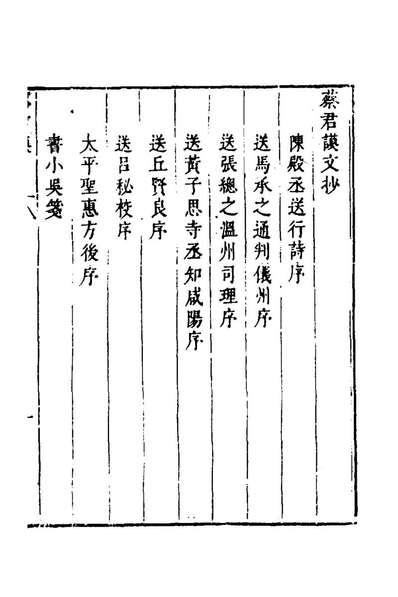 蔡君謨文抄
陳殿丞送行詩序
送馬承之通判儀州序
送張總之溫州司理序
送黃子思寺丞知咸陽序
送丘賢良序
送呂秘校序
太平聖惠方後序
書小吳箋